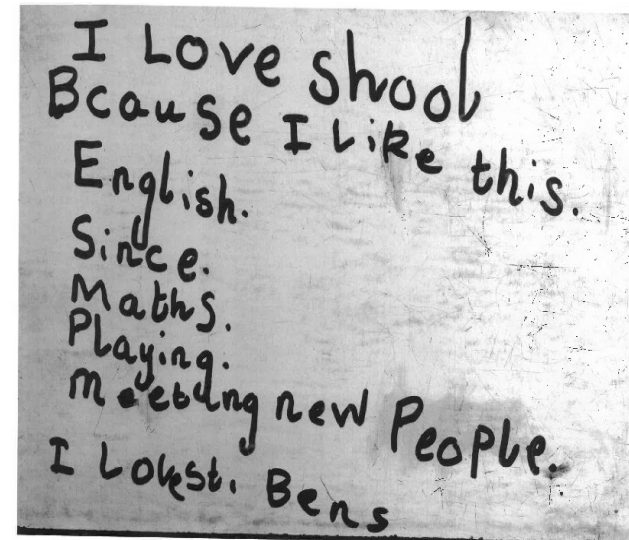 I Love shool
Bcause I Like this.
English.
Since.
Maths.
Playing.
Meeting new People.
I Love st. Bens